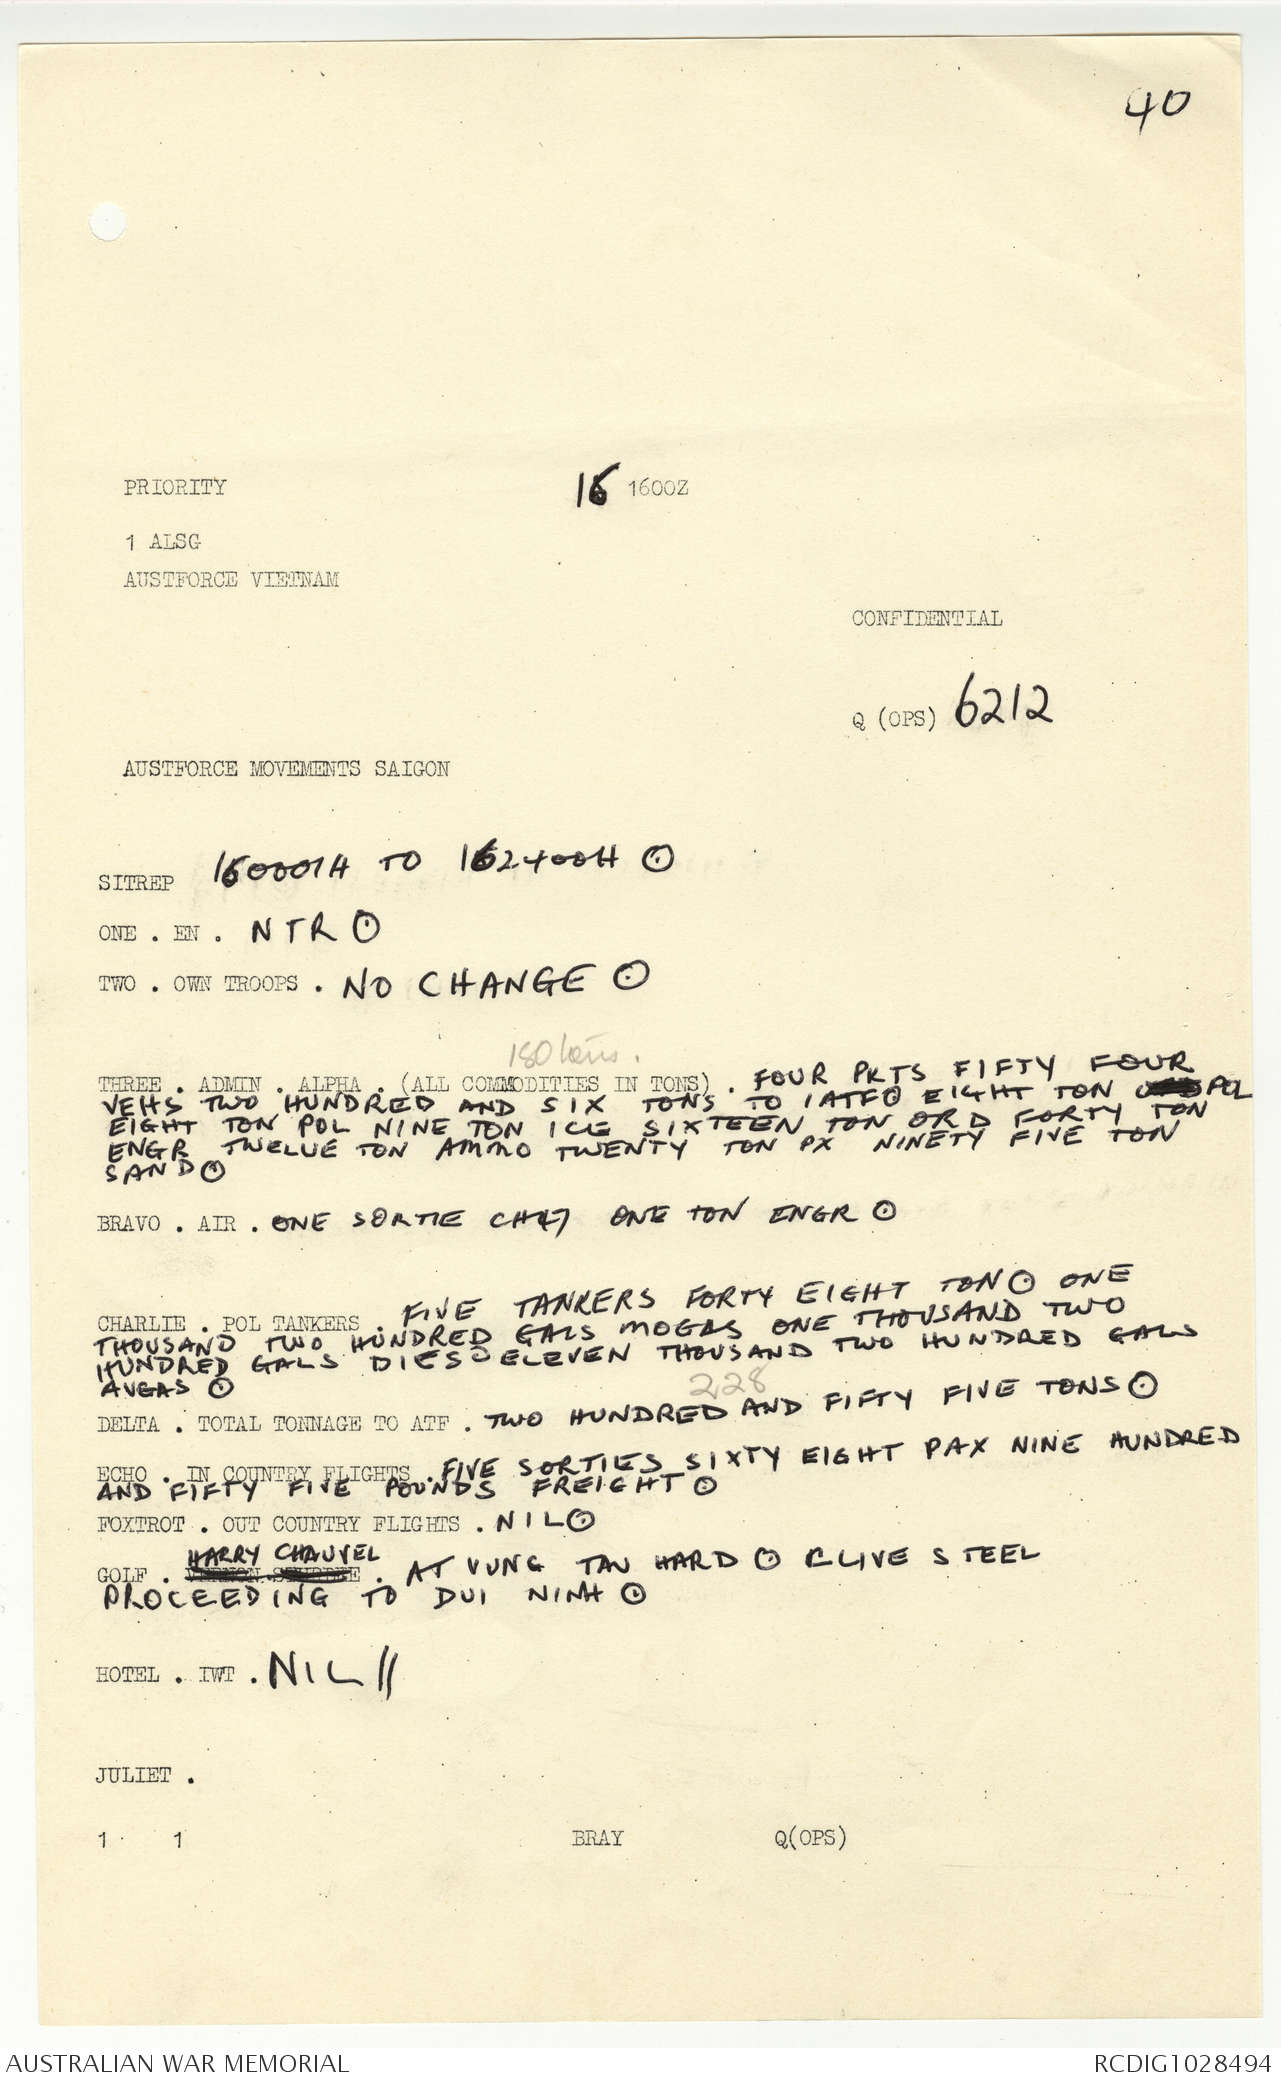 40
PRIORITY 16 1600Z
1 ALSG
AUSTFORCE VIETNAM
CONFIDENTIAL
Q (OPS) 6212
AUSTFORCE MOVEMENTS SAIGON
SITREP 160001H TO 162400H ⊙
ONE . EN . NTR ⊙
TWO . OWN TROOPS . NO CHANGE ⊙
180 tons.
THREE . ADMIN . ALPHA . (ALL COMMODITIES IN TONS) . FOUR PKTS FIFTY FOUR
VEHS TWO HUNDRED AND SIX TONS TO 1ATF ⊙ EIGHT TON POL
EIGHT TON POL NINE TON ICE SIXTEEN TON ORD FORTY TON
ENGR TWELVE TON AMMO TWENTY TON PX NINETY FIVE TON
SAND ⊙
BRAVO . AIR . ONE SORTIE CH47 ONE TON ENGR ⊙
CHARLIE . POL TANKERS . FIVE TANKERS FORTY EIGHT TON ⊙ ONE
THOUSAND TWO HUNDRED GALS MOGAS ONE THOUSAND TWO
HUNDRED GALS DIESO ELEVEN THOUSAND TWO HUNDRED GALS
AVGAS ⊙
228
DELTA . TOTAL TONNAGE TO ATF . TWO HUNDRED AND FIFTY FIVE TONS ⊙
ECHO . IN COUNTRY FLIGHTS . FIVE SORTIES SIXTY EIGHT PAX NINE HUNDRED
AND FIFTY FIVE POUNDS FREIGHT ⊙
FOXTROT . OUT COUNTRY FLIGHTS . NIL ⊙
HARRY CHAUVEL
GOLF . . AT VUNG TAU HARD ⊙ CLIVE STEEL
PROCEEDING TO DUI NINH ⊙
HOTEL . IWT . NIL //
JULIET .
1 1 BRAY Q(OPS)
AUSTRALIAN WAR MEMORIAL RCDIG1028494